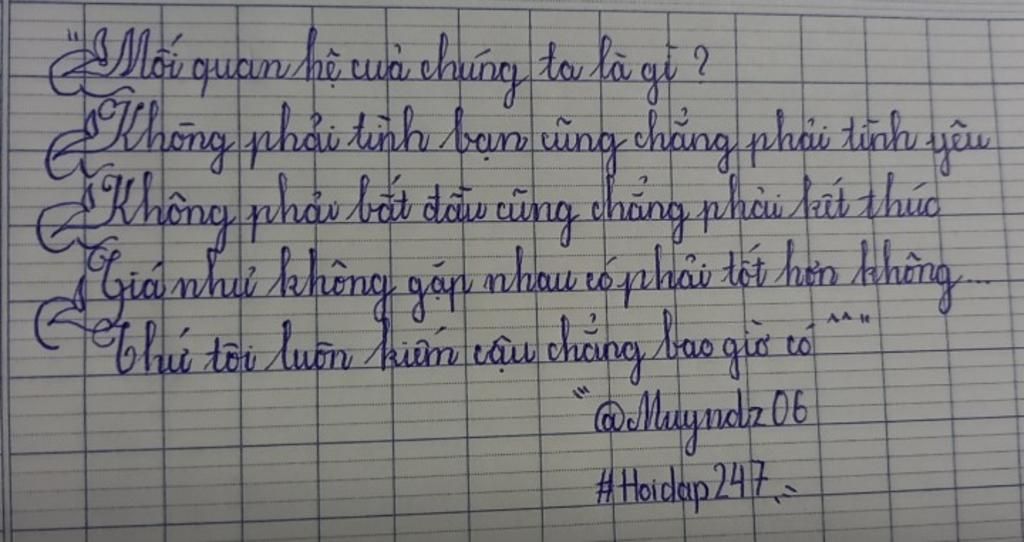 "Mối quan hệ của chúng ta là gì ?
Không phải tình bạn cũng chẳng phải tình yêu
Không phải bắt đầu cũng chẳng phải kết thúc
Giá như không gặp nhau có phải tốt hơn không...
Thứ tôi luôn kiếm cậu chẳng bao giờ có ^^"
"@Muyndz06
#Hoidap247